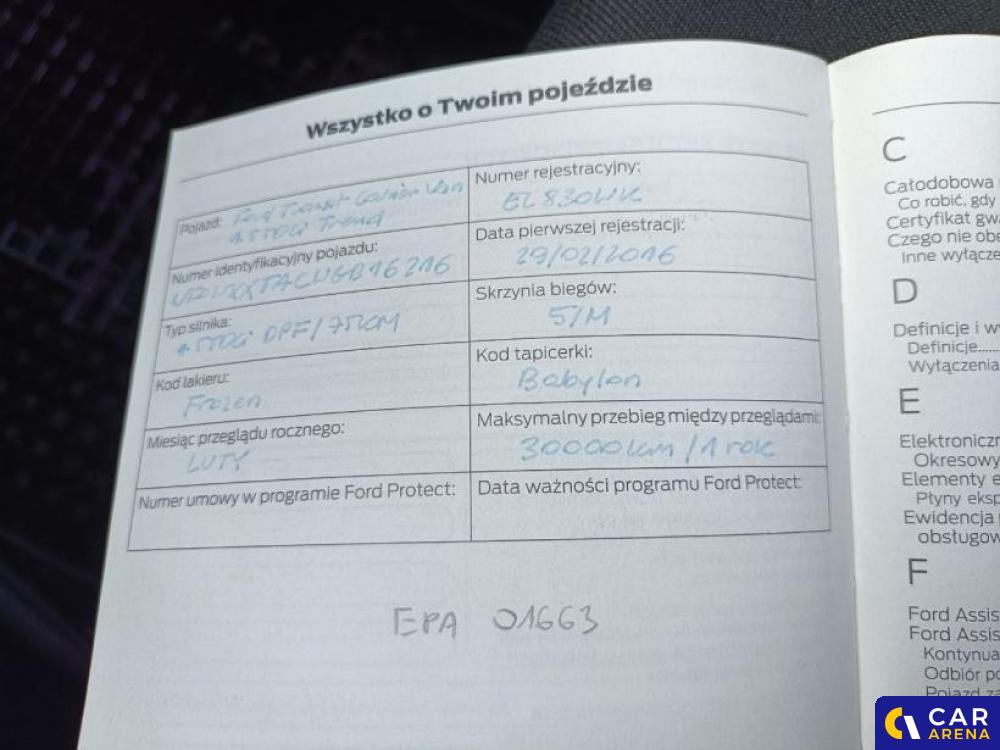 Wszystko o Twoim pojeździe
Pojazd: Ford Transit Courier Van
1.5 TDCi Trend
Numer rejestracyjny:
EL830WK
Numer identyfikacyjny pojazdu:
Data pierwszej rejestracji:
29/02/2016
Typ silnika:
1.5 TDCi DPF/75KM
Skrzynia biegów:
5/M
Kod lakieru:
Frozen
Kod tapicerki:
Babylon
Miesiąc przeglądu rocznego:
LUTY
Maksymalny przebieg między przeglądami:
30000km/1 rok
Numer umowy w programie Ford Protect:
Data ważności programu Ford Protect:
EPA 01663
C
Całodobowa
Co robić, gdy
Certyfikat
Czego nie
Inne
D
Definicje i
Definicje......
Wyłączenia
E
Okresowy
Elementy
Płyny
Ewidencja
F
Ford
Ford
Odbiór
Pojazd
CAR
ARENA